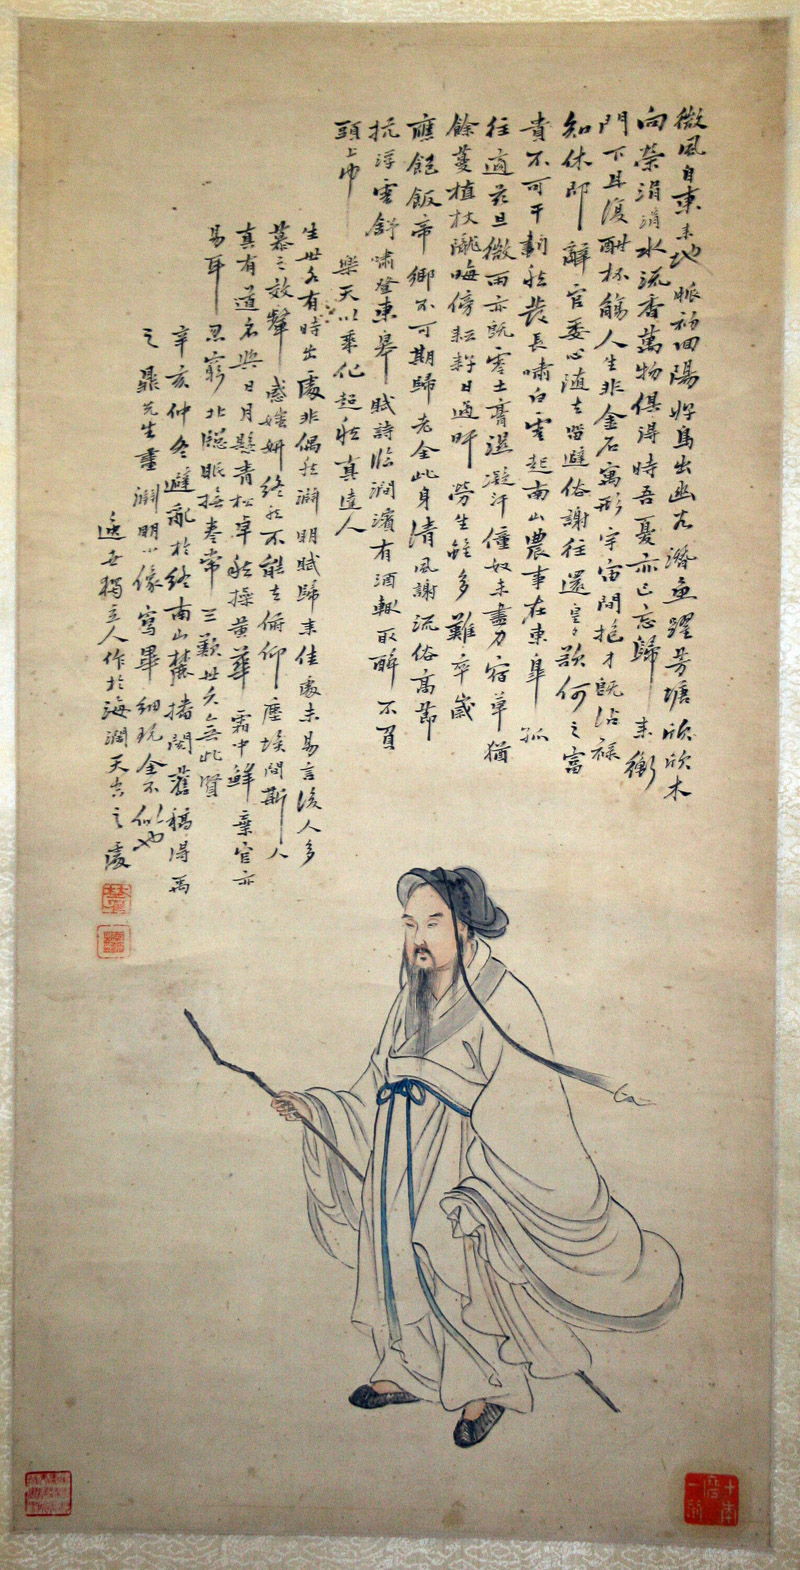 微風自東來地脈初回陽好鳥出幽谷潛魚躍芳塘欣欣木
向榮涓涓水流香萬物俱得時吾憂亦已忘歸來衡
門下且復酣杯觴人生非金石寓形宇宙間抱才既沾祿
知休即辭官委心随去留避俗謝往還皇皇欲何之富
貴不可干動愁喪長嘯白雲起南山農事在東皋孤
往適茲旦微雨亦既零土膏溼凝汗僮奴未盡力宿草猶
餘蔓植杖隴畮傍耘耔日過旰勞生雖多難卒歲
應飽飯帝鄉不可期歸老全此身清風謝流俗高節
抗浮雲舒嘯登東皋賦詩臨澗濱有酒輒取醉不負
頭上巾樂天以乘化超然真達人
生世各有時出處非偶然淵明賦歸來佳處未易言後人多
慕之效顰感媸妍終然不能去俯仰塵埃間斯人
真有道名與日月懸青松卓然操黃華霜中鮮棄官亦
易耳忍窮北牎眠撫卷常三歎世久無此賢
辛亥仲冬避亂於終南山麓搘閣舊稿得禹
之鼎先生畫淵明小像寫畢細玩全不似也
遯世獨立人作於海闊天空之處